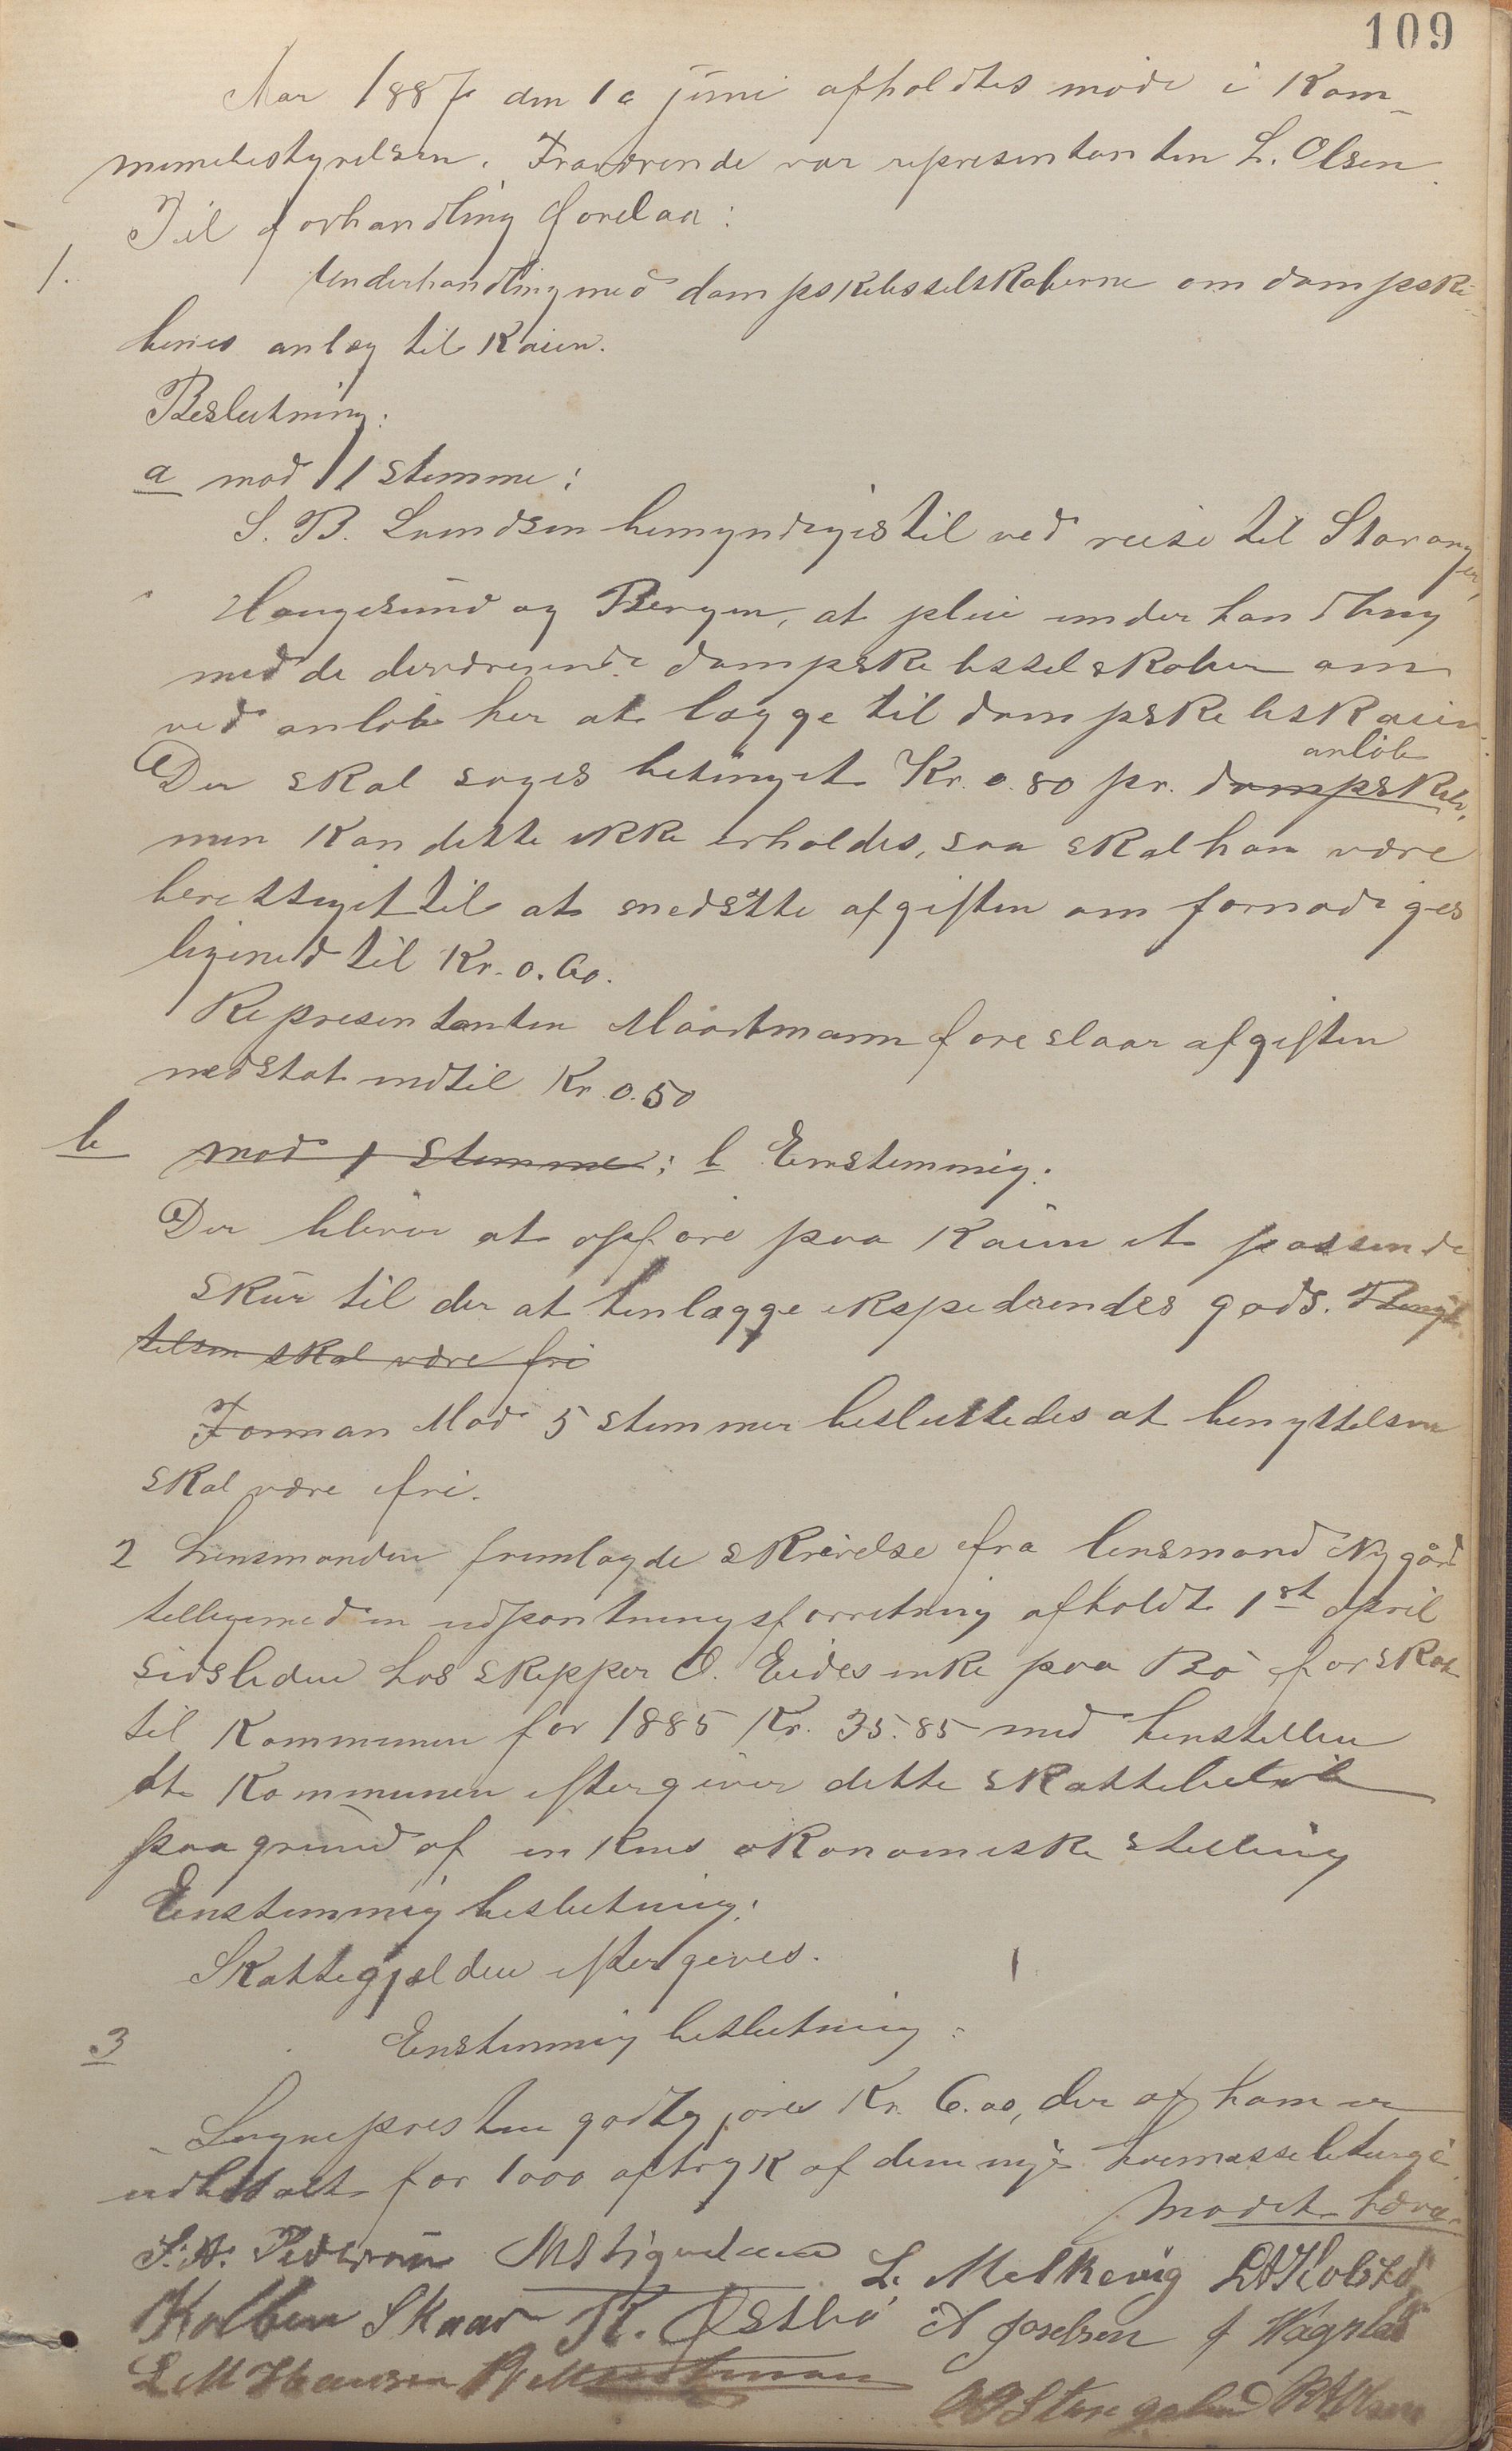 109
Aar 1887 den 10 juni afholdtes møde i Kom-
munebestyrelsen. Fraværende var representanten L. Olsen.
Til forhandling forelaa:
1. Underhandling med dampskibsselskaberne om dampski-
benes anlæg til Kaien.
Beslutning:
a mod 1 stemme:
S. B. Svendsen bemyndiges til ved reise til Stavanger,
Haugesund og Bergen, at pleie underhandling
med de derværende dampskibsselskaber om
ved anløb her at lægge til dampskibskaien.
anløb
Der skal søges betinget Kr. 0.80 pr. dampskib,
men kan dette ikke erholdes, saa skal han være
berettiget til at nedsætte afgiften om fornødiges
ligened til Kr. 0.60.
Representanten Maartmann foreslaar afgiften
nedsat indtil Kr. 0.50
b mod 1 stemme: b Enstemmig:
Der bliver at opføre paa Kaien et passende
skur til der at henlægge ekspederendes gods. Benyt-
telsen skal være fri
Forman Mod 5 stemmer besluttedes at benyttelsen
skal være fri.
2 Lensmanden fremlagde skrivelse fra lensmand Nygård
tilligemed en udpantningsforretning afholdt 1st april
sidstleden hos skipper O. Eides enke paa Bø for skat
til Kommunen for 1885 Kr. 35.85 med henstillen
at Kommunen eftergiver dette skattebeløb
paa grund af enkens økonomiske stilling
Enstemmig beslutning:
Skattegjælden eftergives.
3 Enstemmig beslutning:
Sognepresten godtgjøres Kr. 6.00, der af ham er
udbetalt for 1000 aftryk af den nye høimesseliturgi.
Mødet hævet
J. A. Pedersen L. Melkevig
Kolben Skaar K. Østbø A Joselsen
L M Hansen